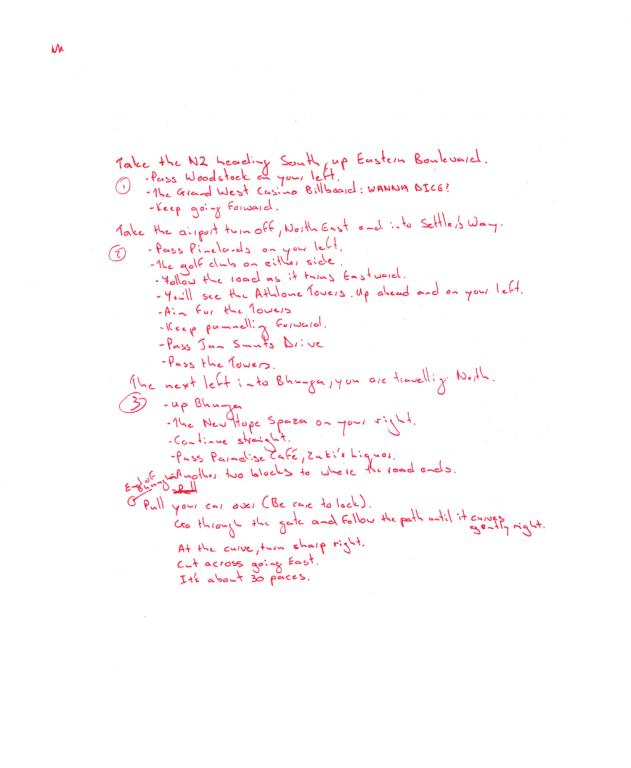 Take the N2 heading South, up Eastern Boulevard.
- Pass Woodstock on your left.
① - The Grand West Casino Billboard: WANNA DICE?
- Keep going forward.
Take the airport turn off, North East and into Settler's Way.
② - Pass Pinelands on your left.
- The golf club on either side.
- Follow the road as it turns Eastward.
- You'll see the Athlone Towers. Up ahead and on your left.
- Aim for the Towers
- Keep pummelling forward.
- Pass Jan Smuts Drive
- Pass the Towers.
The next left into Bhunga, you are travelling North.
③ - up Bhunga
- The New Hope Spaza on your right.
- Continue straight.
- Pass Paradise Café, Zuki's Liquor.
- Another two blocks to where the road ends.
End of
Pull your car over (Be care to lock).
Go through the gate and follow the path until it curves
gently right.
At the curve, turn sharp right.
Cut across going East.
It's about 30 paces.